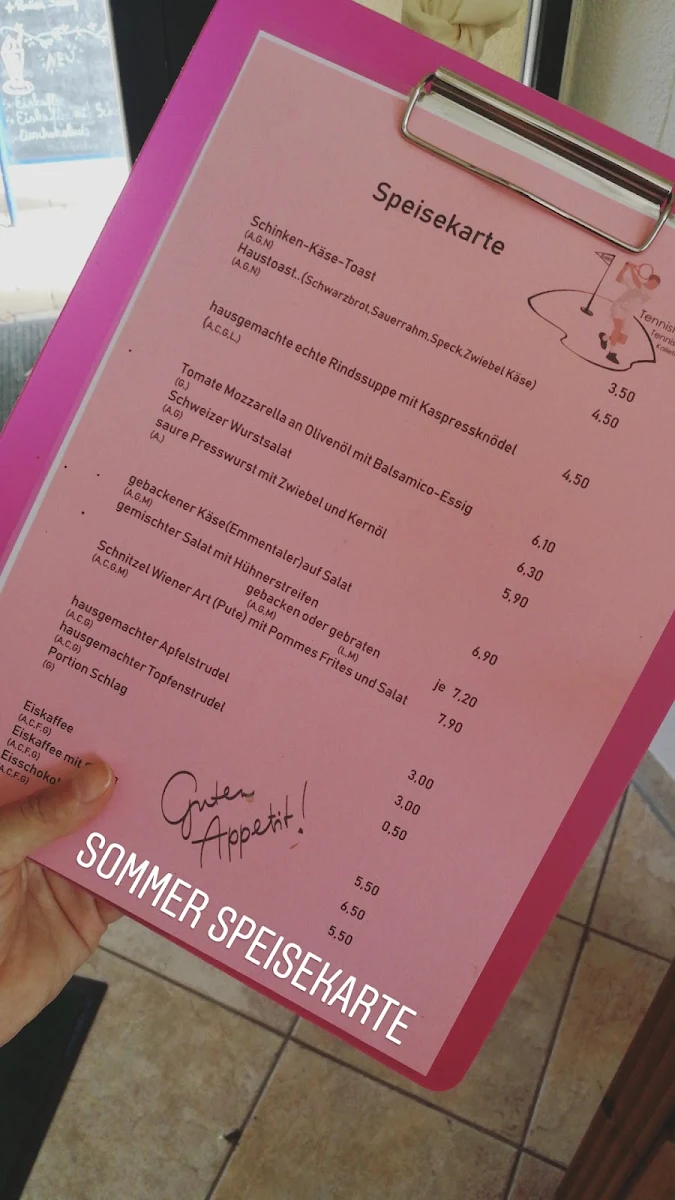 NEU
Eiskaffee
Speisekarte
Tennis
Tennis
Schinken-Käse-Toast 3,50
(A,G,N)
Haustoast..(Schwarzbrot,Sauerrahm,Speck,Zwiebel Käse) 4,50
(A,G,N)
hausgemachte echte Rindssuppe mit Kaspressknödel 4,50
(A,C,G,L)
Tomate Mozzarella an Olivenöl mit Balsamico-Essig 6,10
(G,)
Schweizer Wurstsalat 6,30
(A,G)
saure Presswurst mit Zwiebel und Kernöl 5,90
(A,)
gebackener Käse(Emmentaler)auf Salat 6,90
(A,G,M)
gemischter Salat mit Hühnerstreifen
gebacken oder gebraten je 7,20
(A,G,M) (L,M)
Schnitzel Wiener Art (Pute) mit Pommes Frites und Salat 7,90
(A,C,G,M)
hausgemachter Apfelstrudel 3,00
(A,C,G)
hausgemachter Topfenstrudel 3,00
(A,C,G)
Portion Schlag 0,50
(G)
Eiskaffee 5,50
(A,C,F,G)
Eiskaffee mit 6,50
(A,C,F,G)
Eisschoko 5,50
(A,C,F,G)
Guten
Appetit!
SOMMER SPEISEKARTE